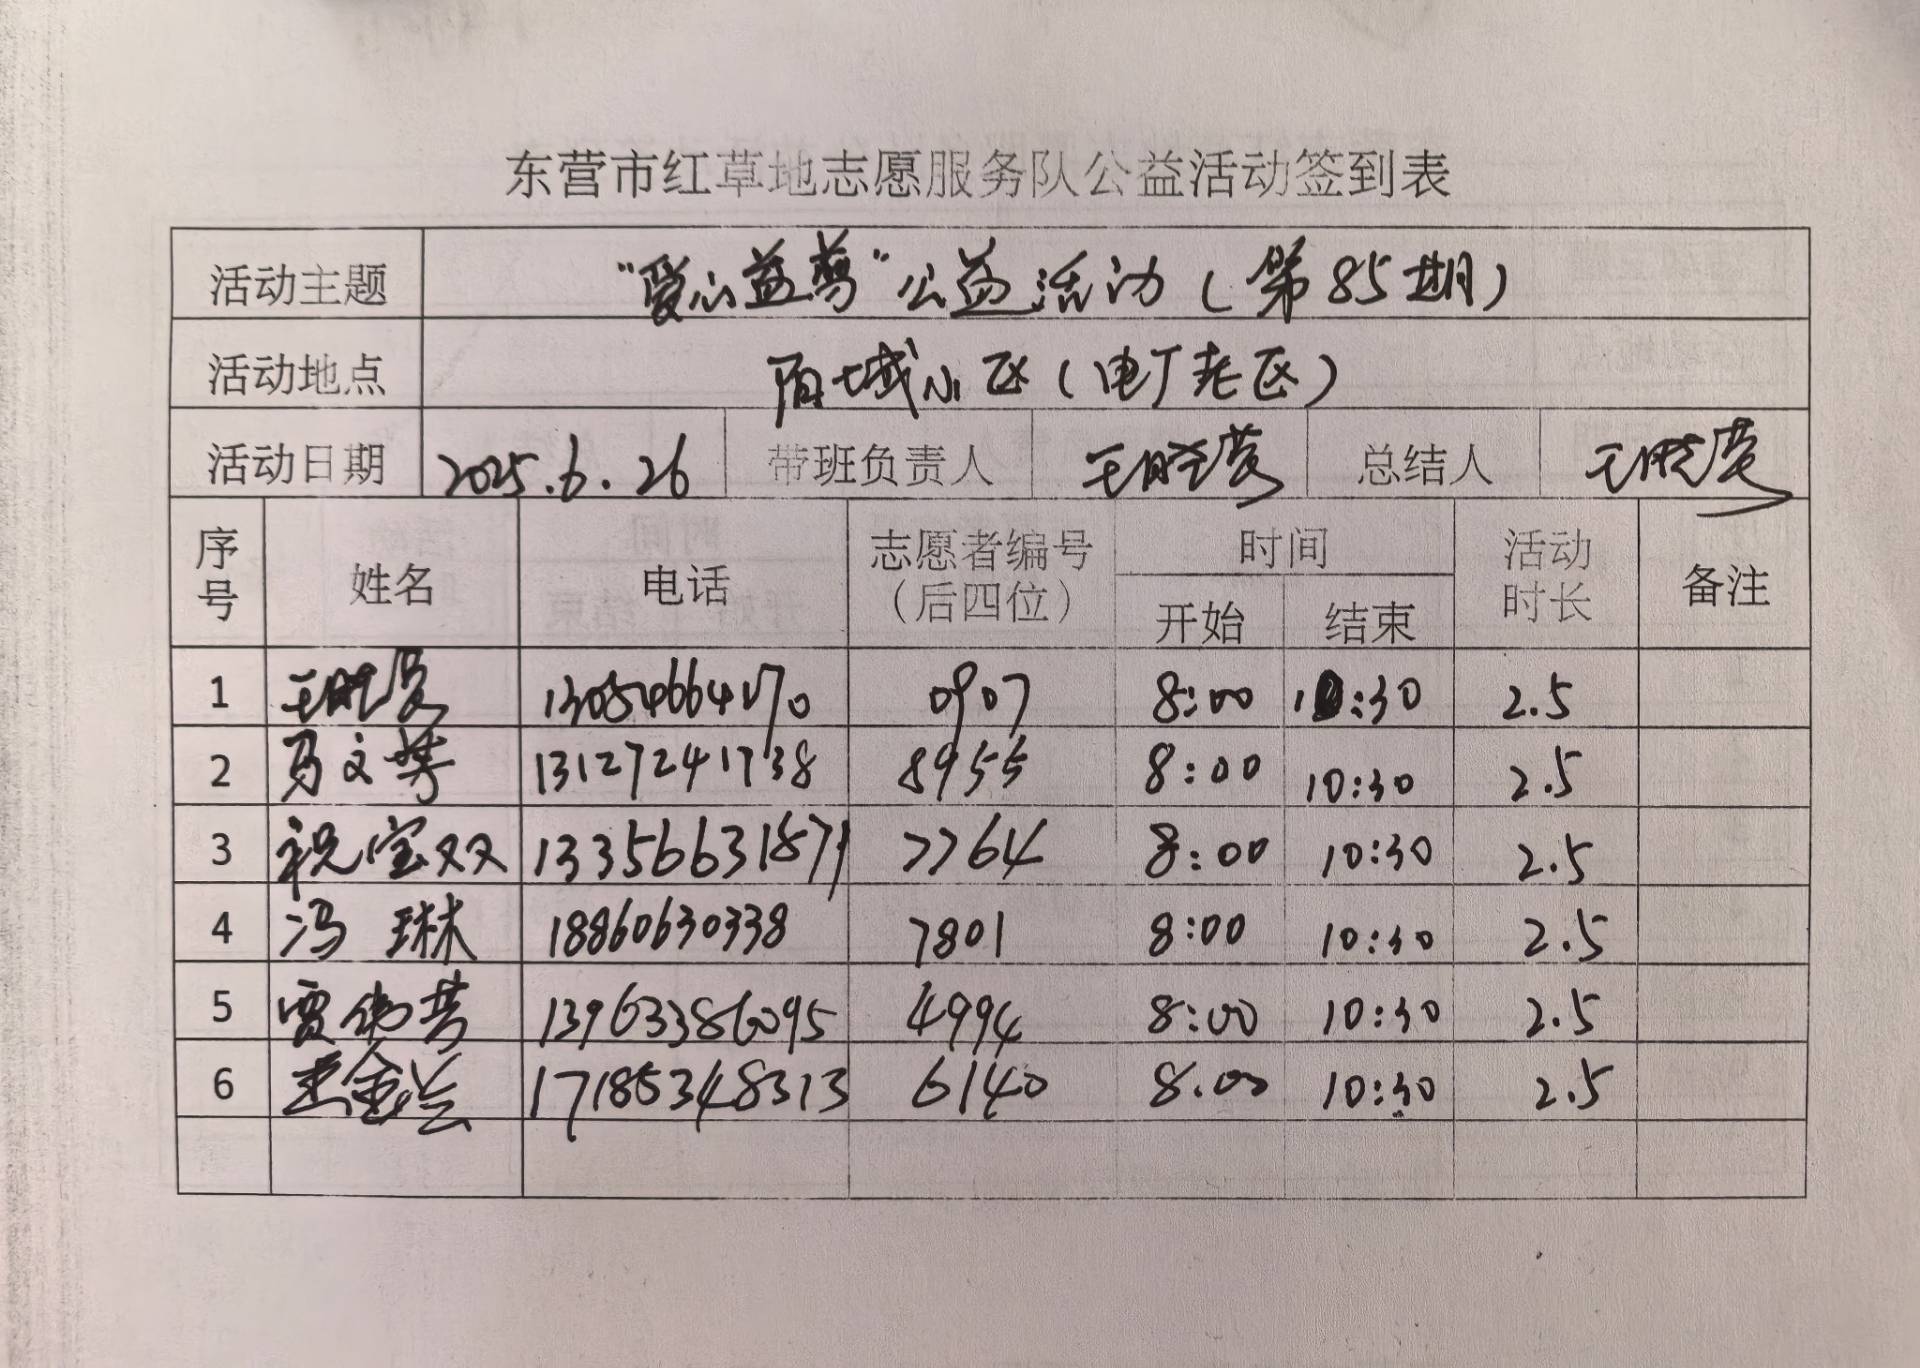 东营市红草地志愿服务队公益活动签到表
活动主题 “爱心益剪”公益活动(第85期)
活动地点 城小区(电厂老区)
活动日期 2025.6.26 带班负责人 王晓莹 总结人 王晓莹
序号 姓名 电话 志愿者编号(后四位) 时间 开始 结束 活动时长 备注
1 王晓莹 13054664170 0907 8:00 10:30 2.5
2 马文 13127241738 8955 8:00 10:30 2.5
3 祝宝双 13356631871 7764 8:00 10:30 2.5
4 冯琳 18860630338 7801 8:00 10:30 2.5
5 贾伟芳 13963386095 4994 8:00 10:30 2.5
6 王金兰 17185348313 6140 8.00 10:30 2.5